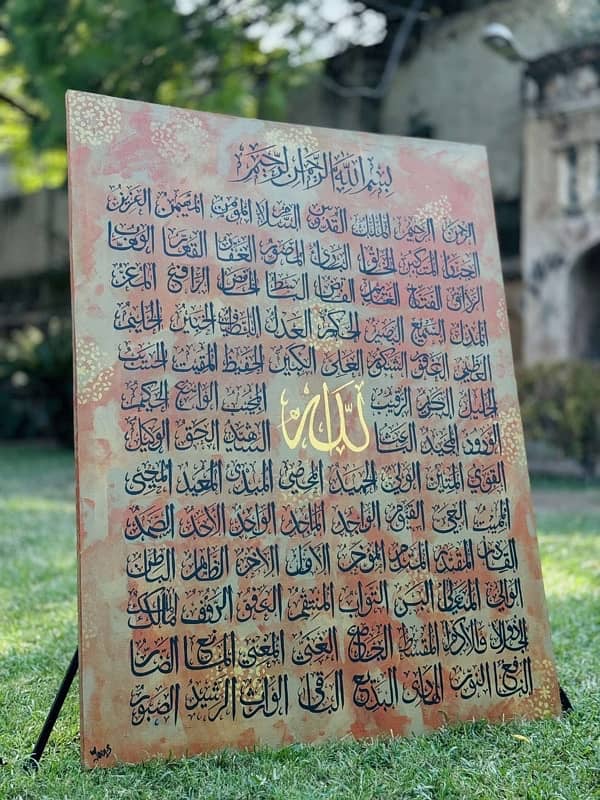 بسم الله الرحمن الرحيم
الرحمن الرحيم الملك القدوس السلام المؤمن المهيمن العزيز
الجبار المتكبر الخالق البارئ المصور الغفار القهار الوهاب
الرزاق الفتاح العليم القابض الباسط الخافض الرافع المعز
المذل السميع البصير الحكم العدل اللطيف الخبير الحليم
العظيم الغفور الشكور العلي الكبير الحفيظ المقيت الحسيب
الجليل الكريم الرقيب المجيب الواسع الحكيم
الله
الودود المجيد الباعث الشهيد الحق الوكيل
القوي المتين الولي الحميد المحصي المبدئ المعيد المحيي
المميت الحي القيوم الواجد الماجد الواحد الاحد الصمد
القادر المقتدر المقدم المؤخر الاول الاخر الظاهر الباطن
الوالي المتعالي البر التواب المنتقم العفو الرؤوف مالك الملك
ذوالجلال والاكرام المقسط الجامع الغني المغني المانع الضار
النافع النور الهادي البديع الباقي الوارث الرشيد الصبور